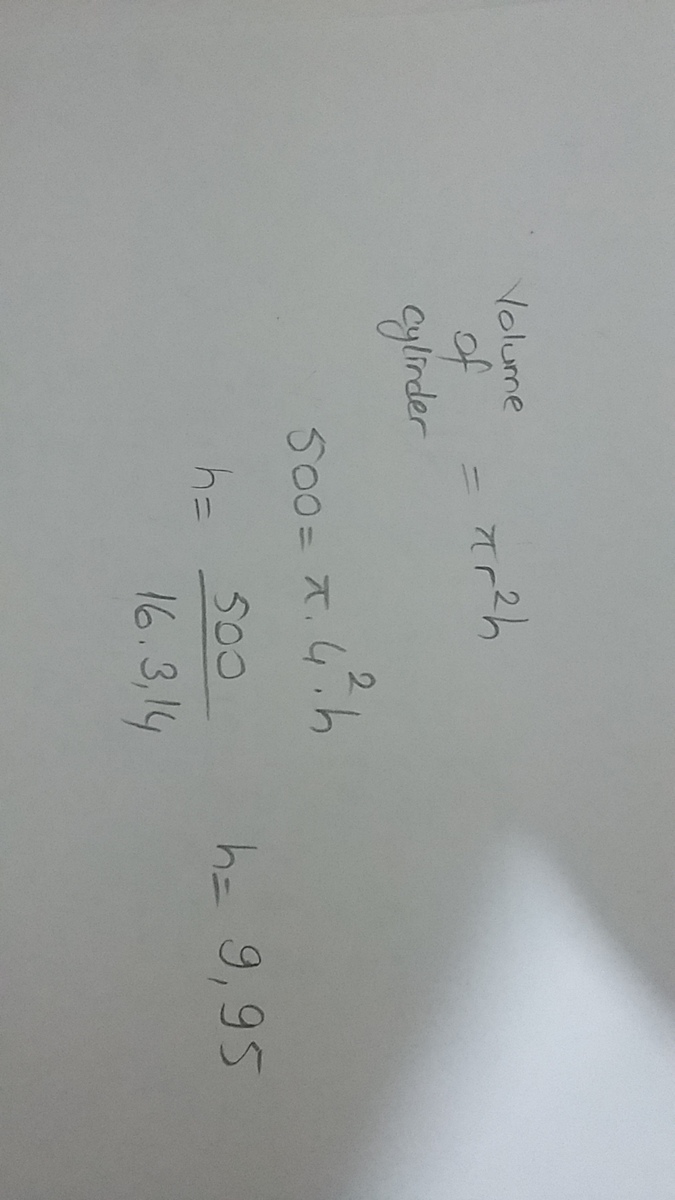 Volume
of
cylinder
= πr²h
500 = π.4².h
h = 500
16.3,14
h = 9,95